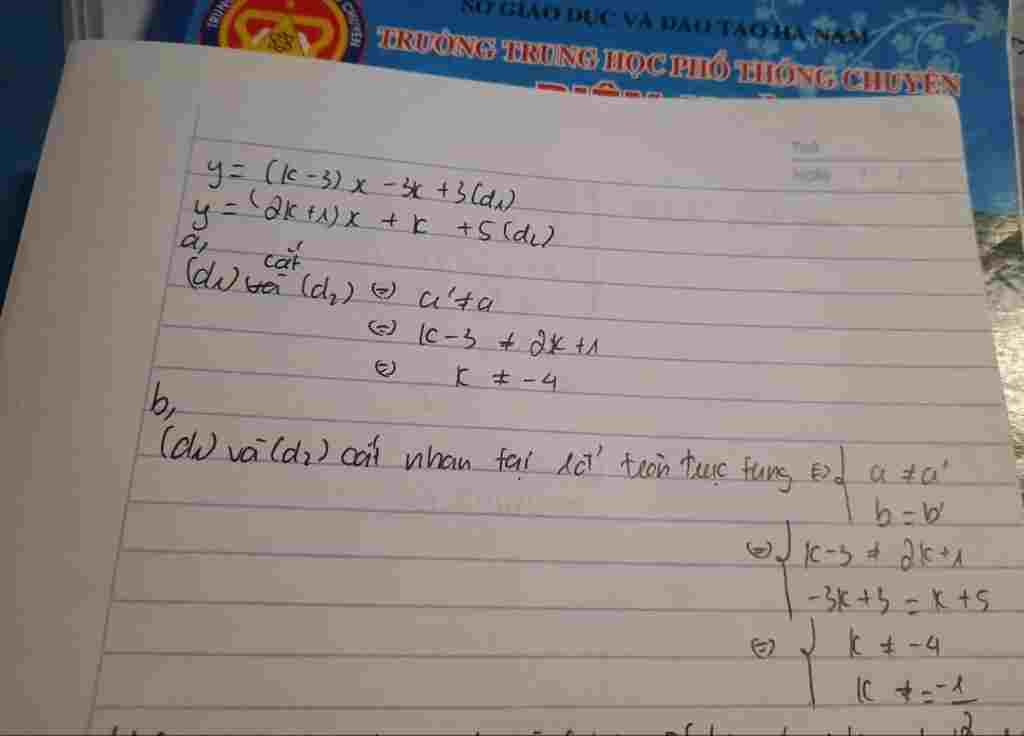 SỞ GIÁO DỤC VÀ ĐÀO TẠO HÀ NAM
TRƯỜNG TRUNG HỌC PHỔ THÔNG CHUYÊN
y = (k-3)x - 3k + 3 (d₁)
y = (2k+1)x + k + 5 (d₂)
a,
(d₁) cắt (d₂) (=) a' ≠ a
(=) k-3 ≠ 2k+1
(=) k ≠ -4
b,
(d₁) và (d₂) cắt nhau tại trên trục tung (=) { a ≠ a'
b = b'
(=) { k-3 ≠ 2k+1
-3k+3 = k+5
(=) { k ≠ -4
k ≠ = -1/2